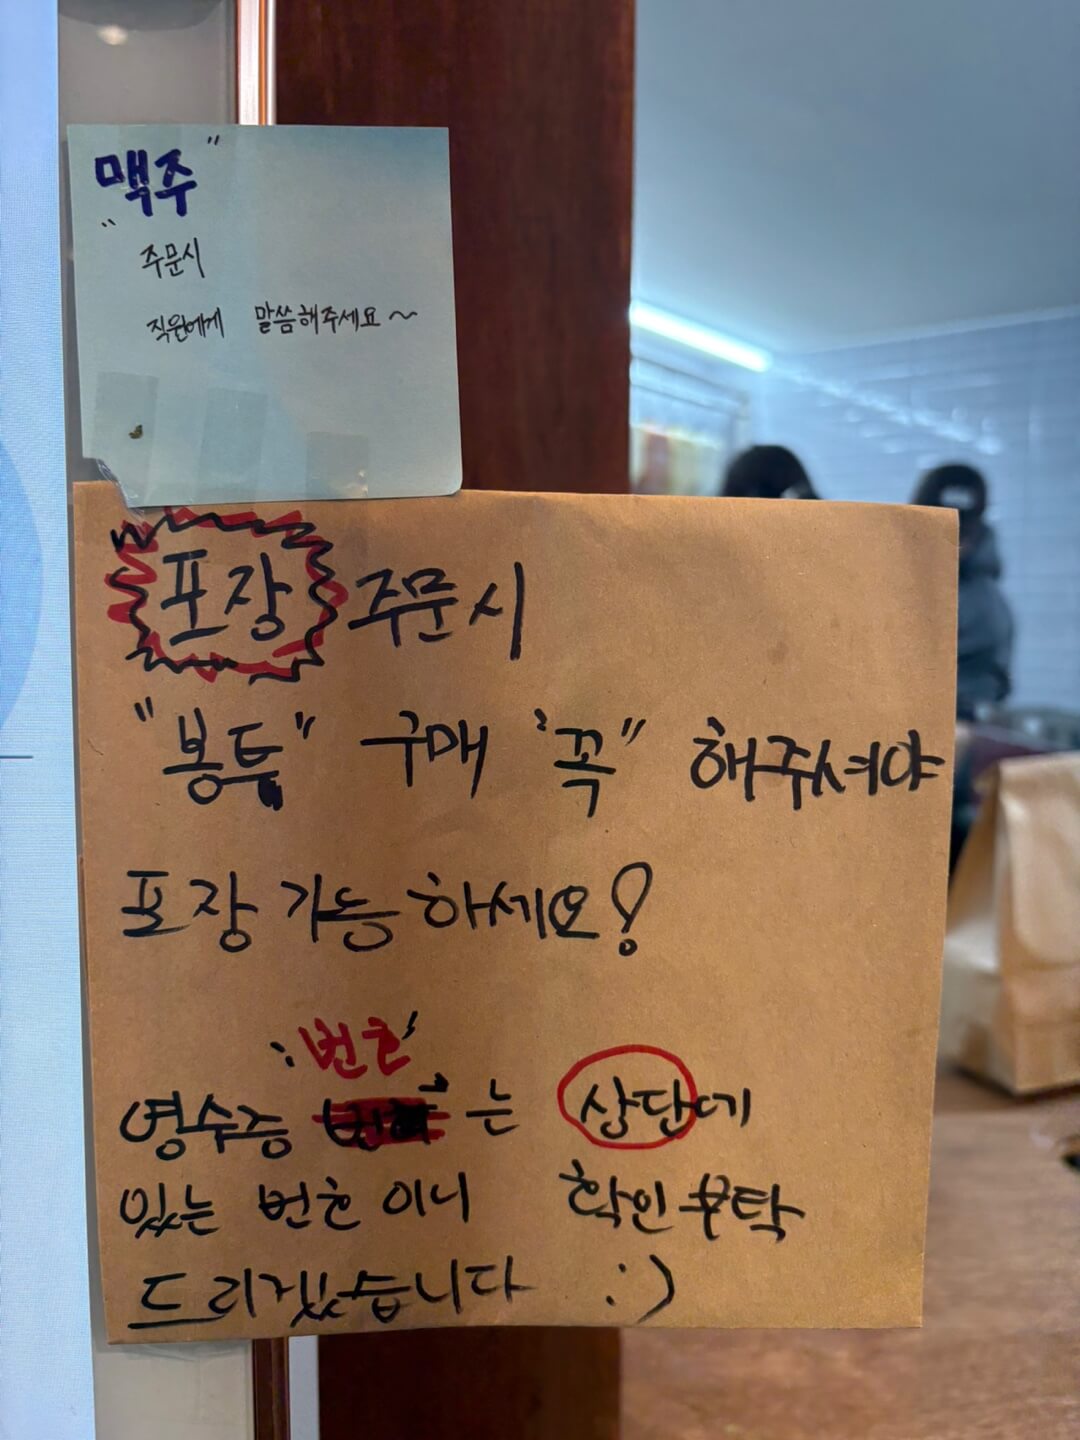 "맥주"
주문시
직원에게 말씀해주세요~
포장 주문시
"봉투" 구매 "꼭" 해주셔야
포장 가능하세요!
'번호'
영수증 는 상단에
있는 번호이니 확인 부탁
드리겠습니다 :)